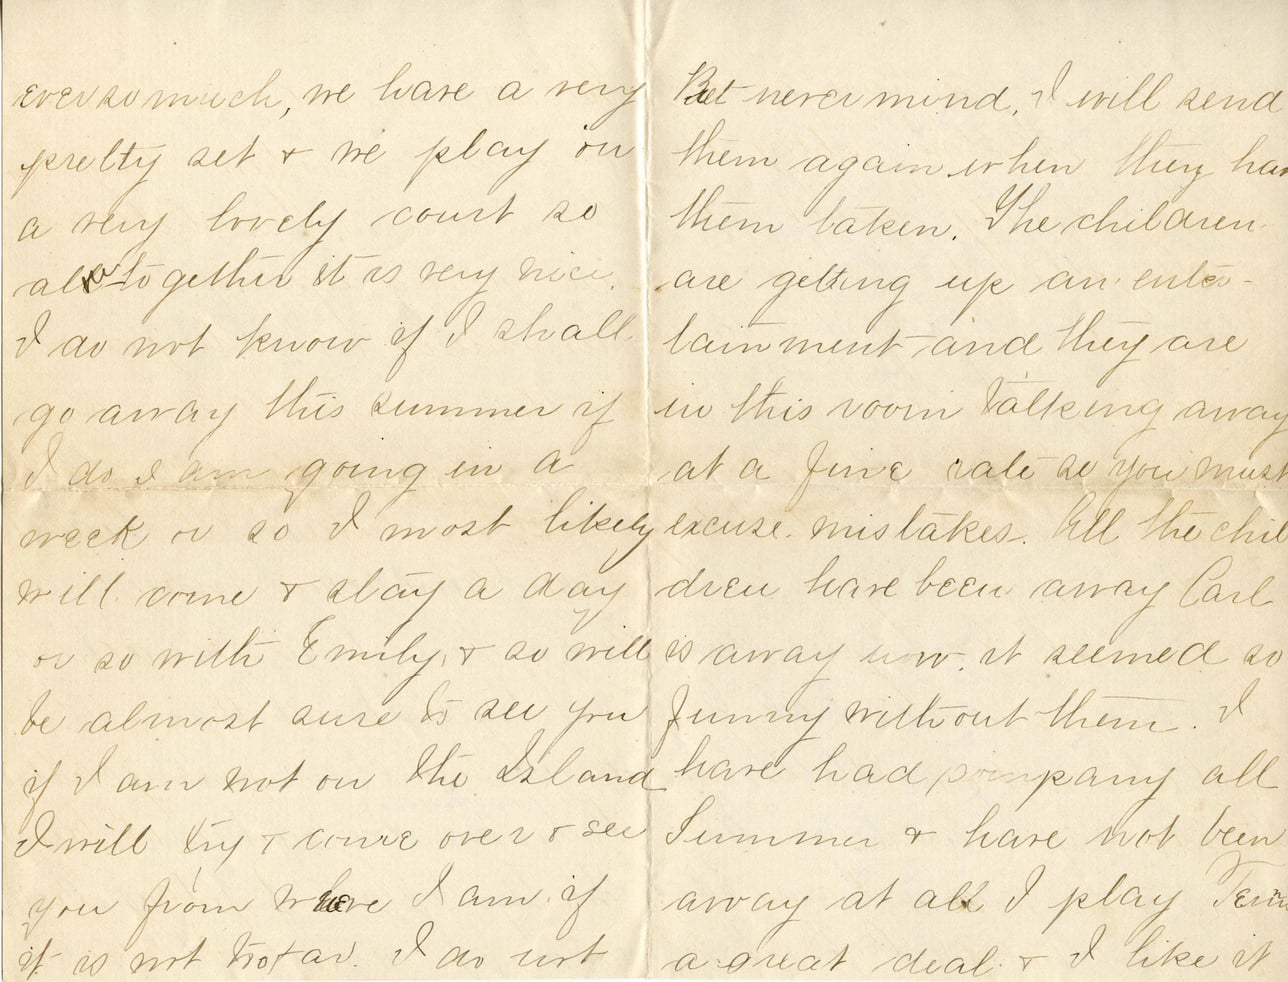 ever so much, we have a very
pretty set & we play on
a very lovely court so
altogether it is very nice.
I do not know if I shall
go away this summer if
I do I am going in a
week or so I most likely
will come & stay a day
or so with Emily, & so will
be almost sure to see you
if I am not on the Island
I will try & come over & see
you from where I am if
it is not too far. I do not
But never mind, I will send
them again when they hav
them taken. The children
are getting up an enter-
tainment and they are
in this room talking away
at a fine rate so you must
excuse mistakes. All the chil
dren have been away Carl
is away now. it seemed so
funny without them. I
have had company all
Summer & have not been
away at all I play Tenn
a great deal & I like it